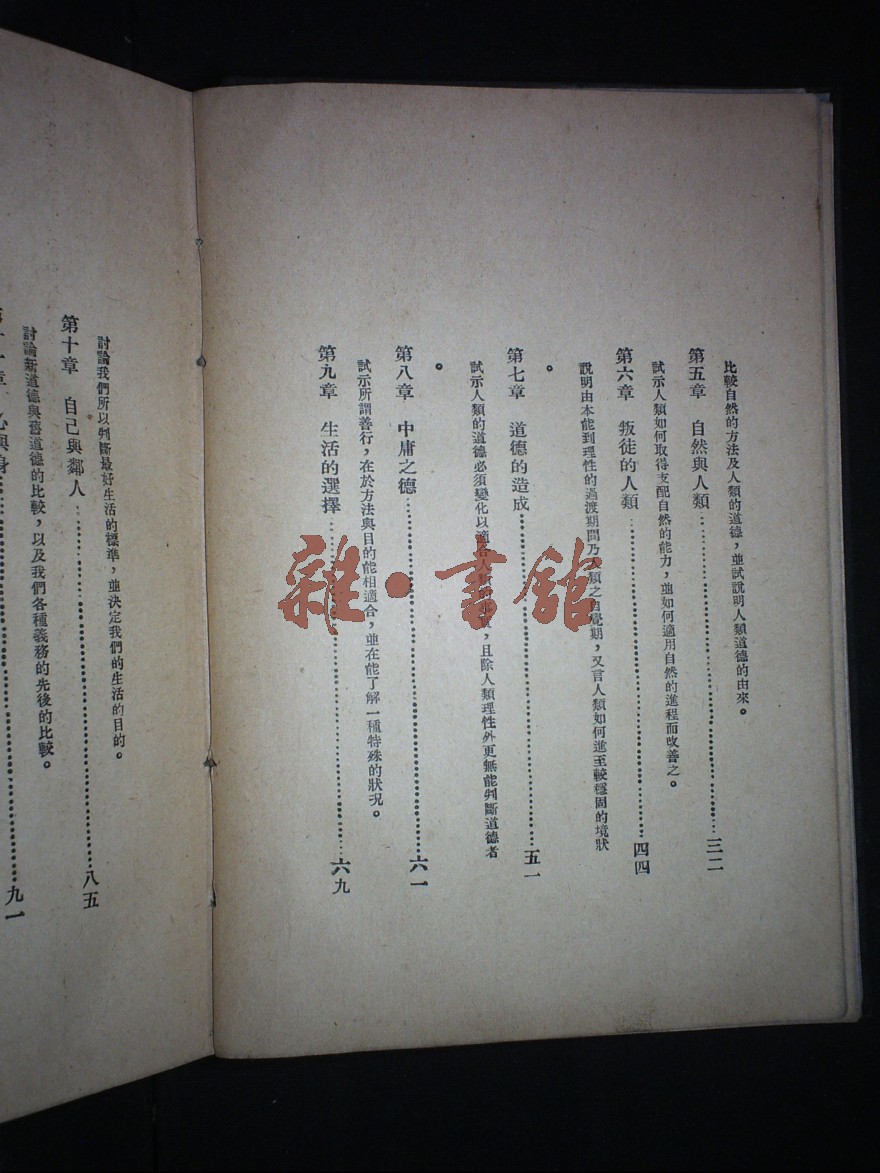 比較自然的方法及人類的道德，並試說明人類道德的由來。
第五章　自然與人類……三二
試示人類如何取得支配自然的能力，並如何適用自然的進程而改善之。
第六章　叛徒的人類……四四
說明由本能到理性的過渡期間乃人類之自覺期，又言人類如何進至較穩固的境狀
。
第七章　道德的造成……五一
試示人類的道德必須變化以適合人類的，且除人類理性外更無能判斷道德者
。
第八章　中庸之德……六一
試示所謂善行，在於方法與目的能相適合，並在能了解一種特殊的狀況。
第九章　生活的選擇……六九
討論我們所以判斷最好生活的標準，並決定我們的生活的目的。
第十章　自己與鄰人……八五
討論新道德與舊道德的比較，以及我們各種義務的先後的比較。
第十一章　心與身……九一
雜·書館